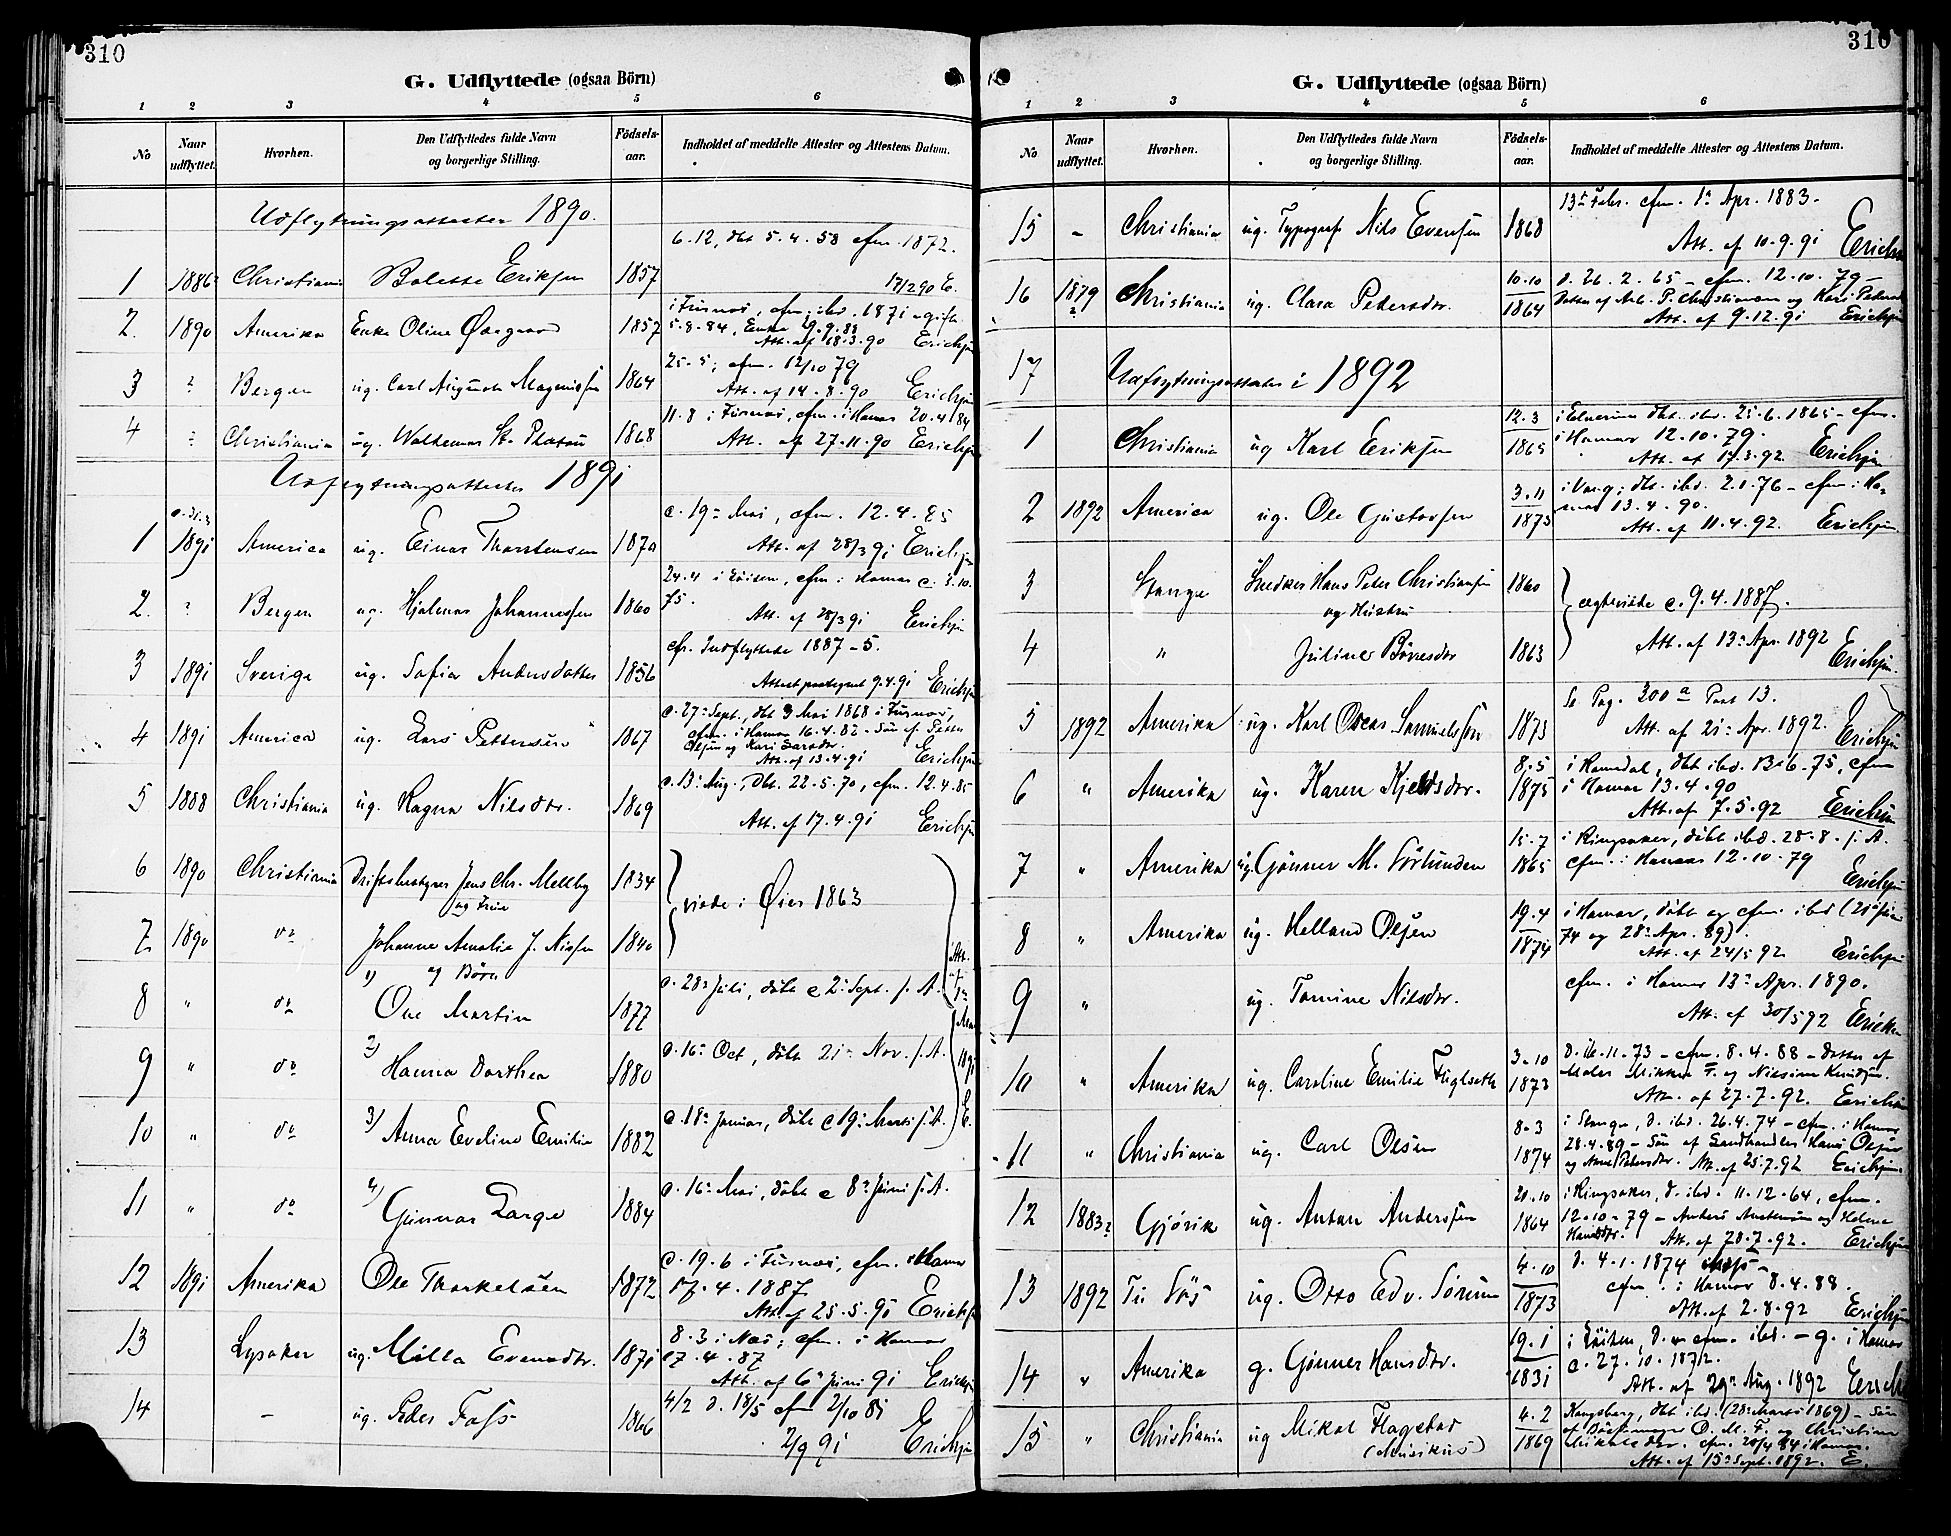 310
G. Udflyttede (ogsaa Börn)
1 2 3 4 5 6
No
Naar udflyttet.
Hvorhen.
Den Udflyttedes fulde Navn og borgerlige Stilling.
Födsels-aar.
Indholdet af meddelte Attester og Attestens Datum.
Udflytningsattester 1890.
6.12, dbt 5.4.58 cfm. 1872.
1 1886? Christiania Bolette Eriksen 1857 17/2 90 E.
2. 1890 Amerika Enke Oline 1857
i Furnæs, cfm. ibd. 1871 - gift
5.8.84, Enke 9.9.88
Att. af 18.3.90 Erichsen
3 ? Bergen ug. Carl August Magnussen 1864
25.5; cfm. 12/10 79
Att. af 14.8.90 Erichsen
4 ? Christiania ug. Waldemar St. Platou 1868
11.8 i Furnæs, cfm. i Hamar 20.4.84
Att. af 27.11.90 Erichsen
Udflytningsattester 1891
1 1891 America ug. Einar Thorstensen 1870
d. 19de Mai, cfm. 12.4.85
Att. af 28/3 91 Erichsen
2. ? Bergen ug. Hjalmar Johannessen 1860
24.4 i Löiten, cfm. i Hamar d. 3.10.
75.
Att. af 28/3 91 Erichsen
3 1891 Sverige ug. Sofia Andersdatter 1856
cfr. Indflyttede 1887 - 5.
Attest paategnet 9.4.91 Erichsen
4 1891 America ug. Lars Pettersen 1867
d. 27de Sept., dbt 3 Mai 1868 i Furnæs,
cfm. i Hamar 16.4.82 - Sön af Petter
Olsen og Kari Larsdtr.
Att. af 13.4.91 Erichsen
5 1888 Christiania ug. Ragna Nilsdtr. 1869
d. 13de Aug., Dbt. 22.5.70, cfm. 12.4.85
Att. af 17.4.91 Erichsen
6 1890 Christiania Driftsbestyrer Jens Chr. Mellby 1834
og Frue
viede i Öier 1863
7 1890 do Johanne Amalie J. Nissen 1840
og Börn
8 " do 1) Ove Martin 1877
d. 28de Juli, döbt d 2den Sept. s. A.
9 " do 2) Hanna Dorthea 1880
d. 16de Oct, döbt 21de Nov. s. A.
10 " do 3) Anna Eveline Emilie 1882
d. 18de Januar, döbt d 19de Marts s. A.
Att. af 1ste Mai 1891 E.
11 " do 4) Gunnar Lange 1884
d. 16de Mai, döbt d 8de Juni s. A.
12 1891 Amerika Ole Thorkelsen 1872
d. 19.6 i Furnæs, cfm. i Hamar
17.4.1887
Att. af 25.5.91 Erichsen
13 Lysaker ug. Milla Evensdtr. 1871
8.3 i Næs; cfm. i Hamar
17.4.87
Att. af 6te Juni 91 Erichsen
14 - ug. Peder Foss 1866
4/2 d. 18/5 cfm 2/10 81
2/9 91 Erichsen
310
G. Udflyttede (ogsaa Börn)
1 2 3 4 5 6
No
Naar udflyttet.
Hvorhen.
Den Udflyttedes fulde Navn og borgerlige Stilling.
Födsels-aar.
Indholdet af meddelte Attester og Attestens Datum.
15 - Christiania ug. Typograf Nils Evensen 1868
13de Febr. cfm. 1ste Apr. 1883.
Att. af 10.9.91 Erichsen
16 1879? Christiania ug. Clara Pedersdtr. 10.10 1864
d. 26.2.65 - cfm. 12.10.79 -
Datter af Arb. P. Christiansen og Kari Pedersd.
Att. af 9.12.91 Erichsen
17 Udflytningsattester i 1892
1 Christiania ug Karl Eriksen 12.3 1865
i Elverum dbt. ibd. 25.6.1865 - cfm.
i Hamar 12.10.79.
Att. af 17.3.92 Erichsen
2 1892 America ug. Ole Gustavsen 3.11 1875
i Vang; dbt. ibd. 2.1.76 - cfm i Ha-
mar 13.4.90.
Att. af 11.4.92. Erichsen
3 Stange Snedker Hans Peter Christiansen 1860
og Hustru
ægteviede d. 9.4.1887.
4 " Juline Börresdtr 1863
Att. af 13de Apr. 1892 Erichsen
5 1892 Amerika ug. Karl Oscar Samuelssön 1873
Se Pag. 300 a Post 13.
Att. af 21de Apr. 1892. Erichsen
6 " Amerika ug. Karen Kjeldsdtr. 8.5 1875
i Romedal, dbt ibd. 13.6.75, cfm
i Hamar 13.4.90
Att. af 7.5.92 Erichsen
7 " Amerika ug. Gunner M. Sörlunden 15.7 1865
i Ringsaker, döbt ibd. 28.8. s. A.
cfm. i Hamar 12.10.79
Erichsen
8 " Amerika ug. Helland Olsen 19.4 1874
i Hamar, döbt og cfm. ibd (21de Juni
74 og 28de Apr. 89).
Att. af 24/5 92 Erichsen
9 " ug. Tomine Nilsdtr.
cfm. i Hamar 13de Apr. 1890.
Att. af 30/5 92 Erichsen
10 " Amerika ug. Caroline Emilie Fuglseth 3.10 1873
D. 16.11.73 - cfm. 8.4.88 - Datter af
Maler Mikkel F. og Nilsine Knudsen.
Att. af 27.7.92. Erichsen
11 " Christiania ug. Carl Olsen 8.3 1874
i Stange, d. ibd. 26.4.74 - cfm. i Hamar
28.4.89 - Sön af Landhandler Hans Olsen
og Anne Petersdtr. Att. af 25.7.92 Erichsen
12 1883? Gjövik ug. Anton Anderssen 20.10 1864
i Ringsaker, d. ibd. 11.12.64, cfm.
12.10.79 - Anders Andersen og Helene
Hansdtr. Att. af 28.7.92. Erichsen
13 1892 Til Sös ug. Otto Edv. Sörum 4.10 1873
d. 4.1.1874
cfm. i Hamar 8.4.88.
Att. af 2.8.92 Erichsen
14 " Amerika g. Gunner Hansdtr. 19.1 1831
i Löiten, d. og cfm. ibd. - g. i Hamar
d. 27.10.1872.
Att. af 29de Aug. 1892 Erichsen
15 " Christiania ug Mikal Flagstad 4.2 1869
(Musikus)
Kongsberg, dbt ibd. (28de Marts 1869) - Sön
af O. M. F. og Christine
Mikalsdtr. cfm. 20/4 84 i Hamar.
Att. af 15de Sept. 1892. E.